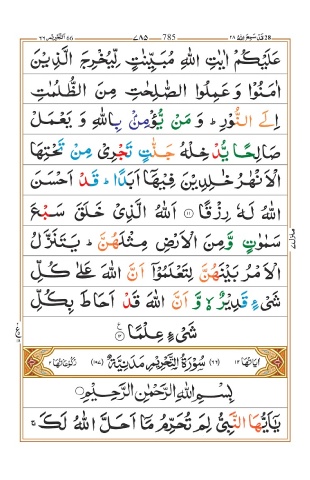 قد سمع الله ٢٨ 785 ٧٨٥ التحريم ٦٦
عَلَيْكُمْ اٰيٰتِ اللّٰهِ مُبَيِّنٰتٍ لِّيُخْرِجَ الَّذِيْنَ
اٰمَنُوْا وَعَمِلُوا الصّٰلِحٰتِ مِنَ الظُّلُمٰتِ
اِلَى النُّوْرِ ؕ وَ مَنْ يُّؤْمِنْۢ بِاللّٰهِ وَ يَعْمَلْ
صَالِحًا يُّدْخِلْهُ جَنّٰتٍ تَجْرِيْ مِنْ تَحْتِهَا
الْاَنْهٰرُ خٰلِدِيْنَ فِيْهَاۤ اَبَدًا ؕ قَدْ اَحْسَنَ
اللّٰهُ لَهٗ رِزْقًا ۝۱۱ اَللّٰهُ الَّذِيْ خَلَقَ سَبْعَ
سَمٰوٰتٍ وَّمِنَ الْاَرْضِ مِثْلَهُنَّ ؕ يَتَنَزَّلُ
الْاَمْرُ بَيْنَهُنَّ لِتَعْلَمُوْۤا اَنَّ اللّٰهَ عَلٰى كُلِّ
شَيْءٍ قَدِيْرٌ ۙ۬ وَّ اَنَّ اللّٰهَ قَدْ اَحَاطَ بِكُلِّ
شَيْءٍ عِلْمًا ۝۱۲
اٰيَاتُهَا ۱۲ (۶۶) سُوْرَةُ التَّحْرِيْمِ مَدَنِيَّةٌ (۱۰۷) رُكُوْعَاتُهَا ۲
بِسْمِ اللّٰهِ الرَّحْمٰنِ الرَّحِيْمِ
يٰۤاَيُّهَا النَّبِيُّ لِمَ تُحَرِّمُ مَاۤ اَحَلَّ اللّٰهُ لَكَ ۚ